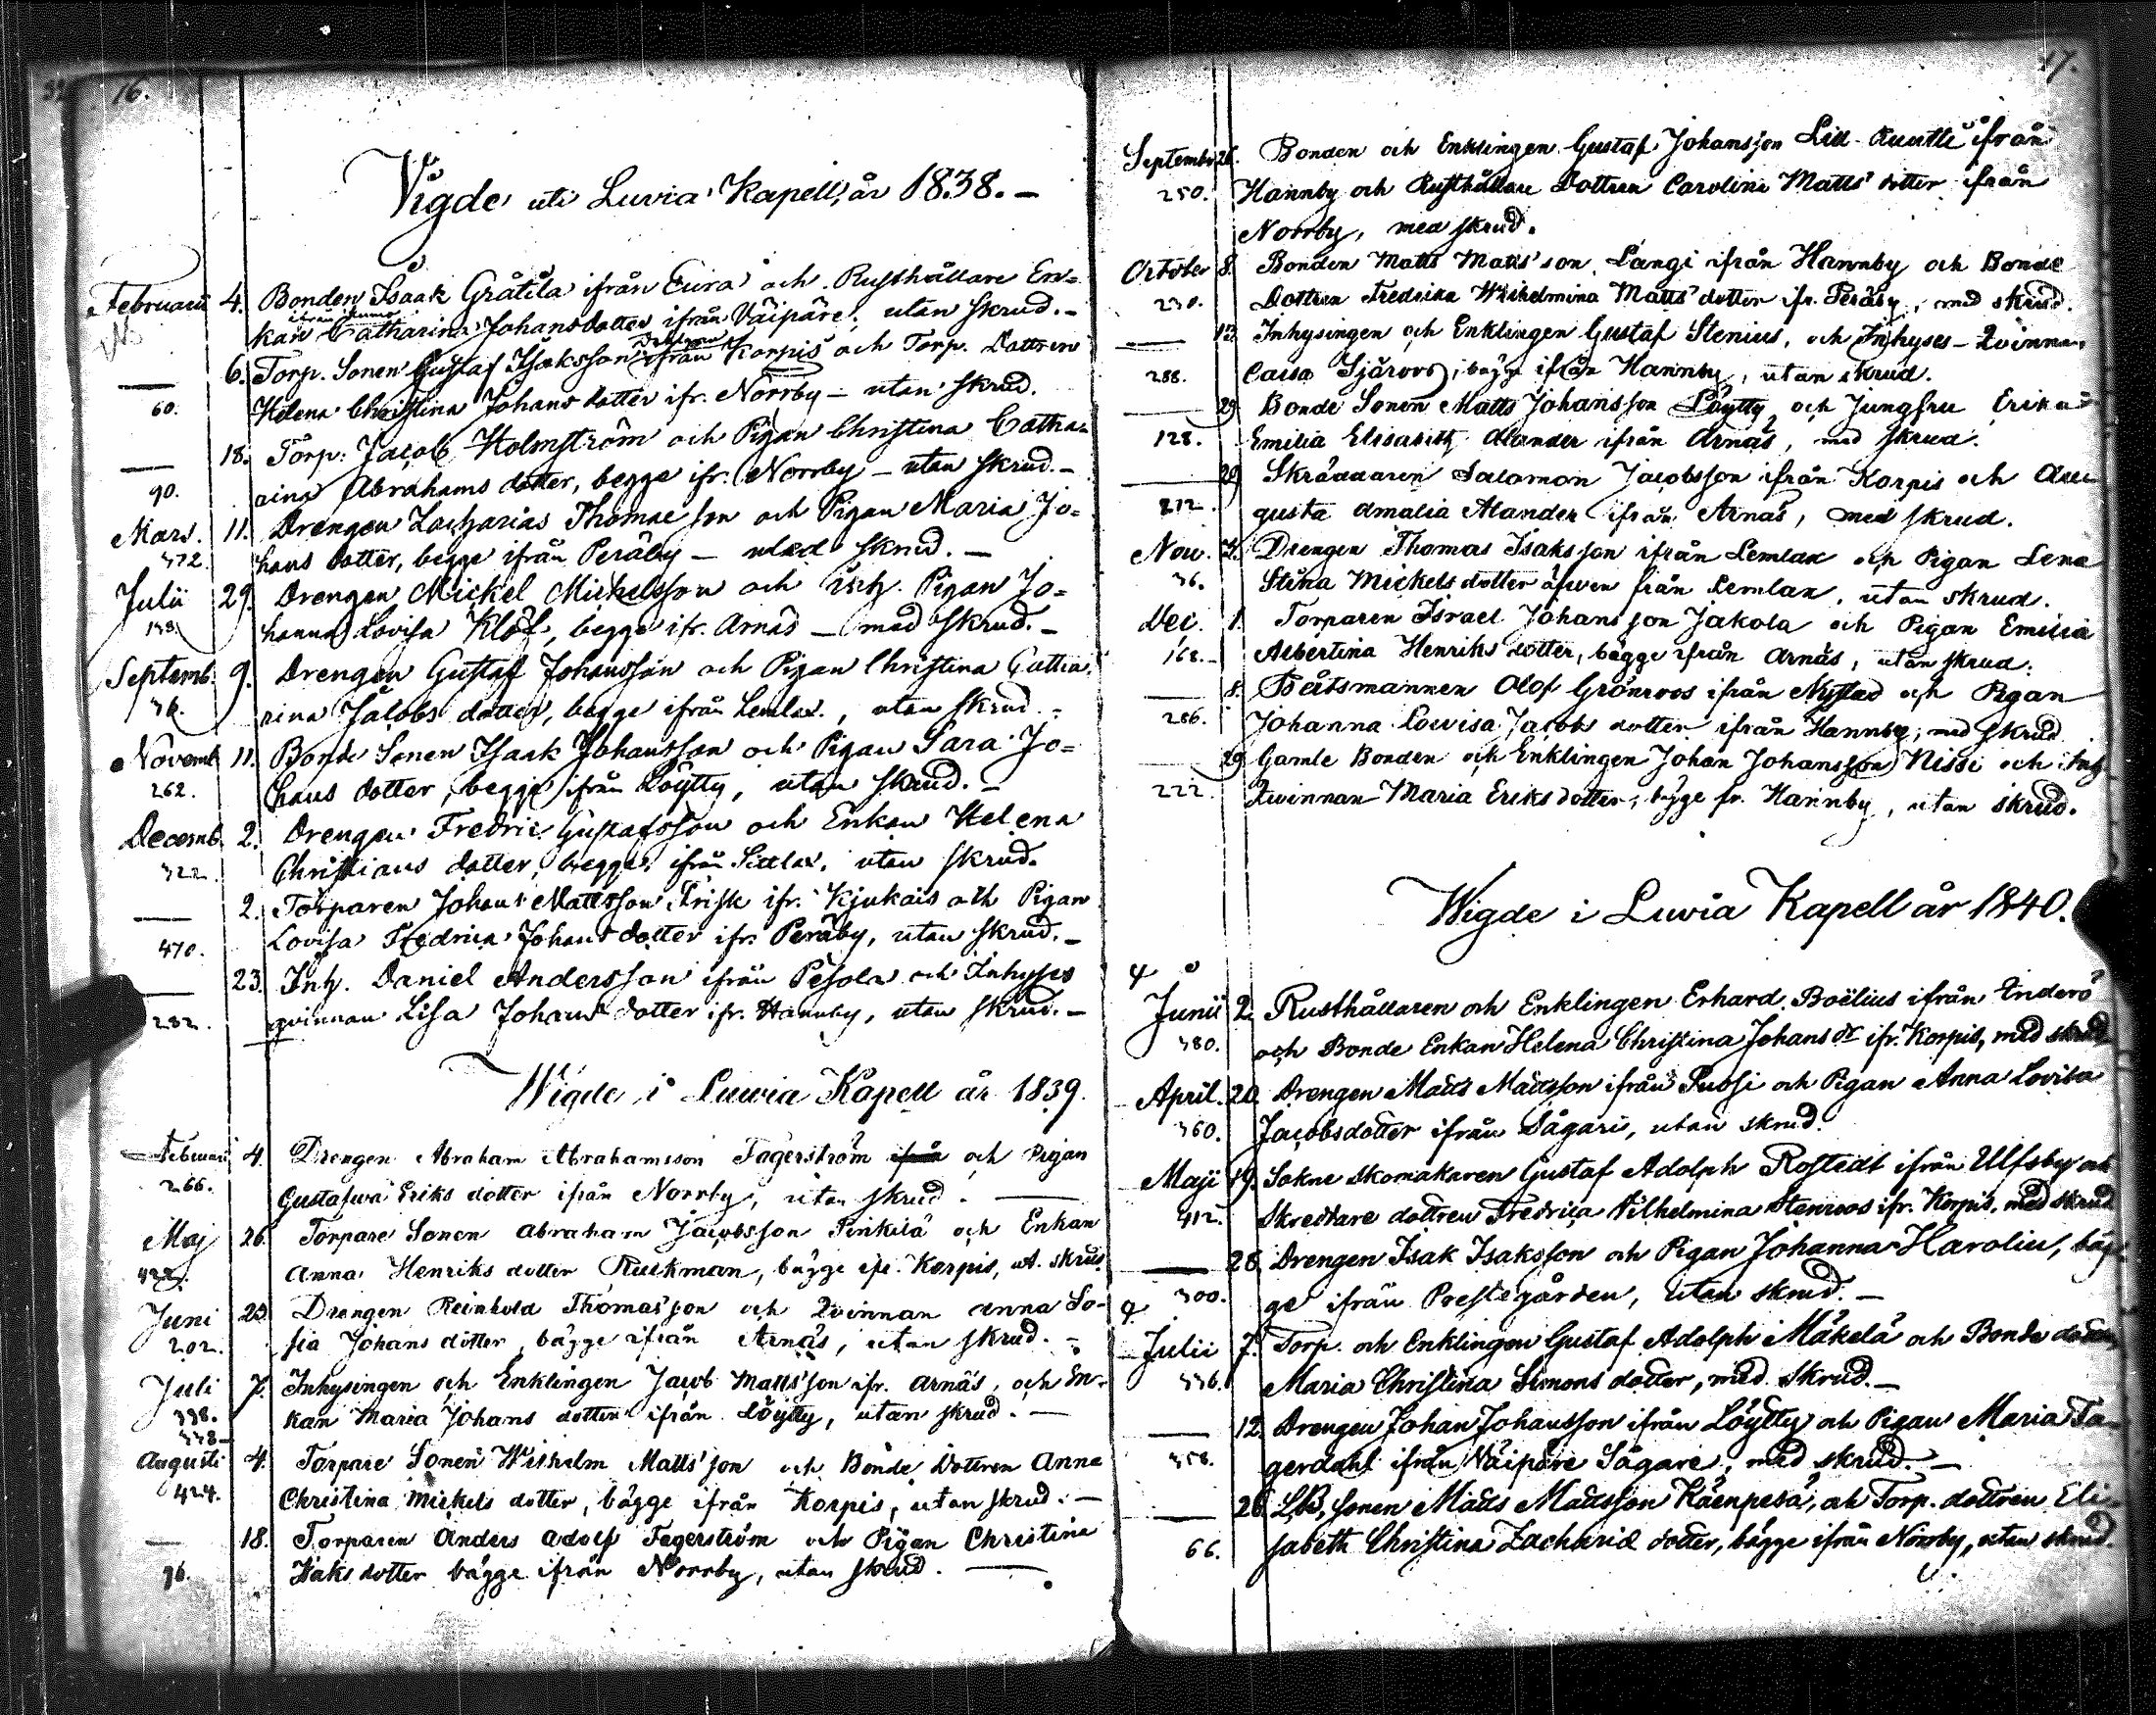 16.
Vigde uti Luvia Kapell, år 1838. –
Februarii 4. Bonden Isaak Gråtila ifrån Eura och Rusthållare En=
kan Catharina Johansdotter ifrån Väipäre, utan skrud. –
6. Torp. Sonen Gustaf Isaksson ifrån Korpis och Torp. Dottren
60. Helena Christina Johans dotter ifr. Norrby – utan skrud.
18. Torp. Jacob Holmström och Pigan Christina Catha=
90. rina Abrahams dotter, begge ifr. Norrby – utan skrud. –
Mars. 11. Drengen Zacharias Thomae son och Pigan Maria Jo=
472. hans dotter, begge ifrån Peräby – med skrud. –
Julii 29. Drengen Mickel Michelsson och Pigan Jo=
138. hanna Lovisa Klöf, begge ifr. Arnäs – med skrud. –
Septemb. 9. Drengen Gustaf Johansson och Pigan Christina Catha
36. rina Jacobs dotter, begge ifrån Lemlax, utan skrud. –
Novemb 11. Bonde Sonen Isaak Johansson och Pigan Sara Jo=
262. hans dotter, begge ifrån Löytty, utan skrud. –
Decemb. 2. Drengen Fredric Gustafsson och Enkan Helena
322. Christians dotter, begge ifrån utan skrud.
2. Torparen Johan Mattsson Frisk ifr. Kjukais och Pigan
470. Lovisa Fredrica Johans dotter ifr. Peräby, utan skrud. –
23. Inh. Daniel Andersson ifrån Pesola och Inhyses
282. qvinnan Lisa Johans dotter ifr. Hannby, utan skrud. –
Wigde i Luvia Kapell år 1839.
Februari 4. Drengen Abraham Abrahamsson Fagerström och Pigan
266. Gustafva Eriks dotter ifrån Norrby, utan skrud. –
Maj 26. Torpare Sonen Abraham Jacobsson Penkilä och Enkan
422. Anna Henriks dotter Ruckman, bägge ifr. Korpis, ut. skrud
Juni 23. Drengen Reinhold Thomas'son och Qvinnan Anna So-
202. fia Johans dotter, bägge ifrån Arnäs, utan skrud. –
Juli 7. Inhysingen och Enklingen Jacob Matts'son ifr. Arnäs, och En-
338. kan Maria Johans dotter ifrån Löytty, utan skrud. –
338
Augusti 4. Torpare Sonen Wilhelm Matts'son och Bonde Dottren Anna
424. Christina Mickels dotter, bägge ifrån Korpis, utan skrud. –
18. Torparen Anders Adolf Fagerström och Pigan Christina
96. Isaks dotter bägge ifrån Norrby, utan skrud. –
17.
Septembr 26. Bonden och Enklingen Gustaf Johansson Lill ifrån
250. Hannby och Rusthållare Dottren Carolina Matts' dotter ifrån
Norrby, med skrud.
October 8. Bonden Matts Matts'son Langi ifrån Hannby och Bonde
230. Dottren Fredrika Wilhelmina Matts' dotter ifr. Peräby, med skrud.
13. Inhysingen och Enklingen Gustaf Stenius, och Inhyses-Qvinnan
288. Caisa Sjöroos, bägge ifrån Hannby, utan skrud.
29. Bonde Sonen Matts Johansson Löytty och Jungfru Erika
128. Emilia Elisabeth Alander ifrån Arnäs, med skrud.
29. Skräddaren Salomon Jacobsson ifrån Korpis och Au
212. gusta Amalia Alander ifrån Arnäs, med skrud.
Nov. 3. Drengen Thomas Isaksson ifrån Lemlax och Pigan Lena
36. Stina Mickels dotter äfwen från Lemlax, utan skrud.
Dec. 1. Torparen Israel Johansson Jakola och Pigan Emilia
168. Albertina Henriks dotter, bägge ifrån Arnäs, utan skrud.
8. Båtsmannen Olof Grönroos ifrån Nystad och Pigan
286. Johanna Lowisa Jacobs dotter ifrån Hannby, med skrud
29. Gamle Bonden och Enklingen Johan Johansson Nissi och Inh
222. Qwinnan Maria Eriks dotter, bägge fr. Hannby, utan skrud.
Wigde i Luvia Kapell år 1840.
Junii 2. Rusthållaren och Enklingen Erhard Boëlius ifrån Enderö
380. och Bonde Enkan Helena Christina Johans Dr ifr. Korpis, med skrud
April. 20. Drengen Matts Mattsson ifrån Puosi och Pigan Anna Lovisa
360. Jacobsdotter ifrån Sågari, utan skrud.
Maji 19. Sokne skomakaren Gustaf Adolph Rostedt ifrån Ulfsby och
412. Skreddare dottren Fredrica Vilhelmina Stenroos ifr. Korpis, med skrud
28. Drengen Isak Isaksson och Pigan Johanna Harolin, bäg-
300. ge ifrån Prestegården, utan skrud. –
Julii 7. Torp. och Enklingen Gustaf Adolph Mäkelä och Bonde dottren
336. Maria Christina Simons dotter, med skrud. –
12. Drengen Johan Johansson ifrån Löytty och Pigan Maria Fa-
358. gerdahl ifrån Väipäre Sågare, med skrud. –
26. Sonen Matts Mattsson Käenpesä, och Torp. dottren Eli-
66. sabeth Christina Zacharid dotter, bägge ifrån Norrby, utan skrud.